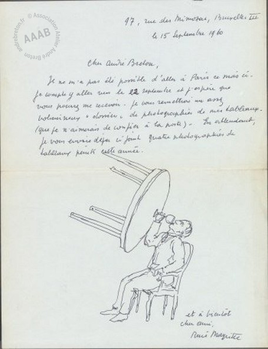 97, rue des Mimosas, Bruxelles III
le 15 Septembre 1960
Cher André Breton,
Je ne m'a pas été possible d'aller à Paris ce mois ci.
Je compte y aller vers le 22 septembre et j'espère que
vous pourrez me recevoir. Je vous remettrai un assez
volumineux « dossier » de photographies de mes tableaux
(que je n'aimerais de confier à la poste). En attendant,
Je vous envoie déjà ci joint quatre photographies de
tableaux peints cette année.
et à bientôt
cher ami,
René Magritte
AAAB